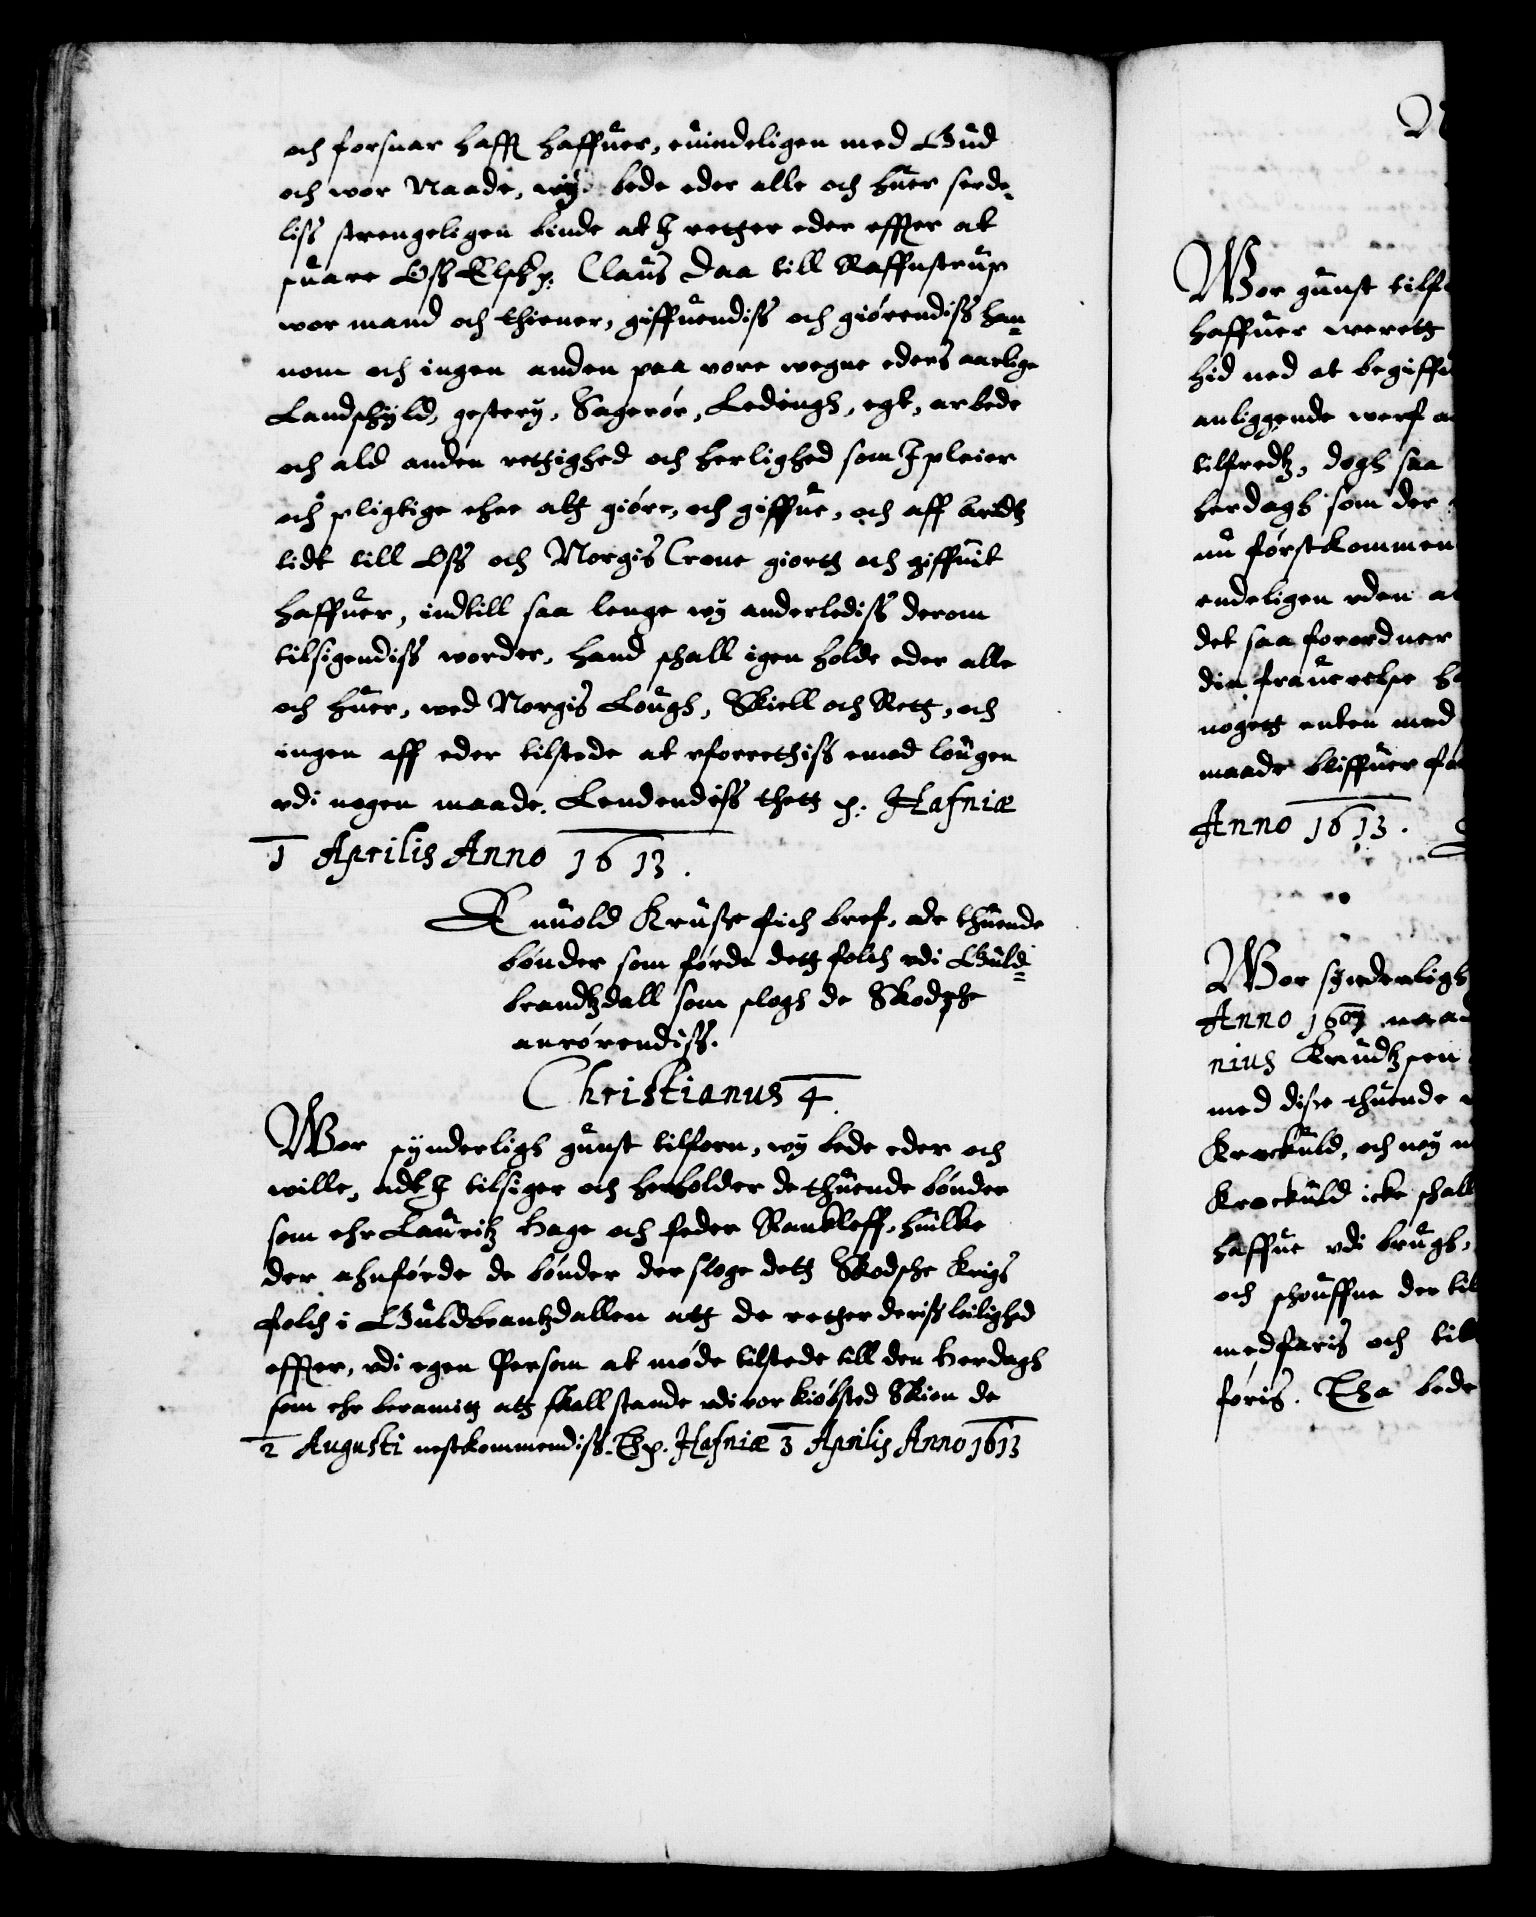 och forsuar hafft haffuer, euindeligen med Gud
och wor Naade, wij bede eder alle och huer serde-
liss strengeligen biude at I retter eder effter at
suare Oss Elsch: Claus Daa till Raffnstrup
wor mand och thiener, giffuendiss och giörendiss han-
nom och ingen anden paa vore wegne eders aarlige
Landschyld, gestery, Sagerör, Ledingh, egt, arbede
och ald anden rettighed och herlighed som I pleier
och pligtige ehre att giöre, och giffue, och aff areldtz
tidt till Oss och Norgis Crone giortt och giffuit
haffuer, indtill saa lenge wy anderlediss derom
tilsigendiss worder, hand schall igen holde eder alle
och huer, wed Norgis Lough, Skiell och Rett, och
ingen aff eder tilstede at vforrettiss emod lougen
vdi nogen maade. Lendendiss thett p: Hafniæ
1 Aprilis Anno 1613.
Enuold Kruse fich bref, ade thuende
bönder som förde dett folch vdi Guld-
brandtzdall som slogh de Skodsche
anrörendiss.
Christianus 4
Wor synderligh gunst tilforn, wy bede eder och
wille, adt I tilsiger och beholder de thuende bönder
som ehr Lauritz Hage och Peder Rankleff, huilke
der ahnförde de bönder der sloge dett Skodsche krigs
folch i Guldbrantzdallen att de retter deriss leilighed
effter, vdi egen Person at möde tilstede till den Herdagh
som ehr beramitt att skall stande vdi vor kiöbsted Skien de
2 Augusti nestkommendiss. Ex. Hafniæ 3 Aprilis Anno 1613
Wor gunst tilfo
haffuer werett
hid ned at begiffu
anliggende werf a
tilfredtz, dogh saa
herdagh som der
nu förstkommen
endeligen vden a
det saa forordner
din frauerelse h
nogett enten med
maade bliffuer fo
Anno 1613.
Wor synderligh
Anno 1607 naa
nius Krudtzsen
med disse thuende
Krockuld, och noy
Krockuld icke schall
haffue vdi brugh,
och schouffue der til
medfaris och till
föris. Tha bede